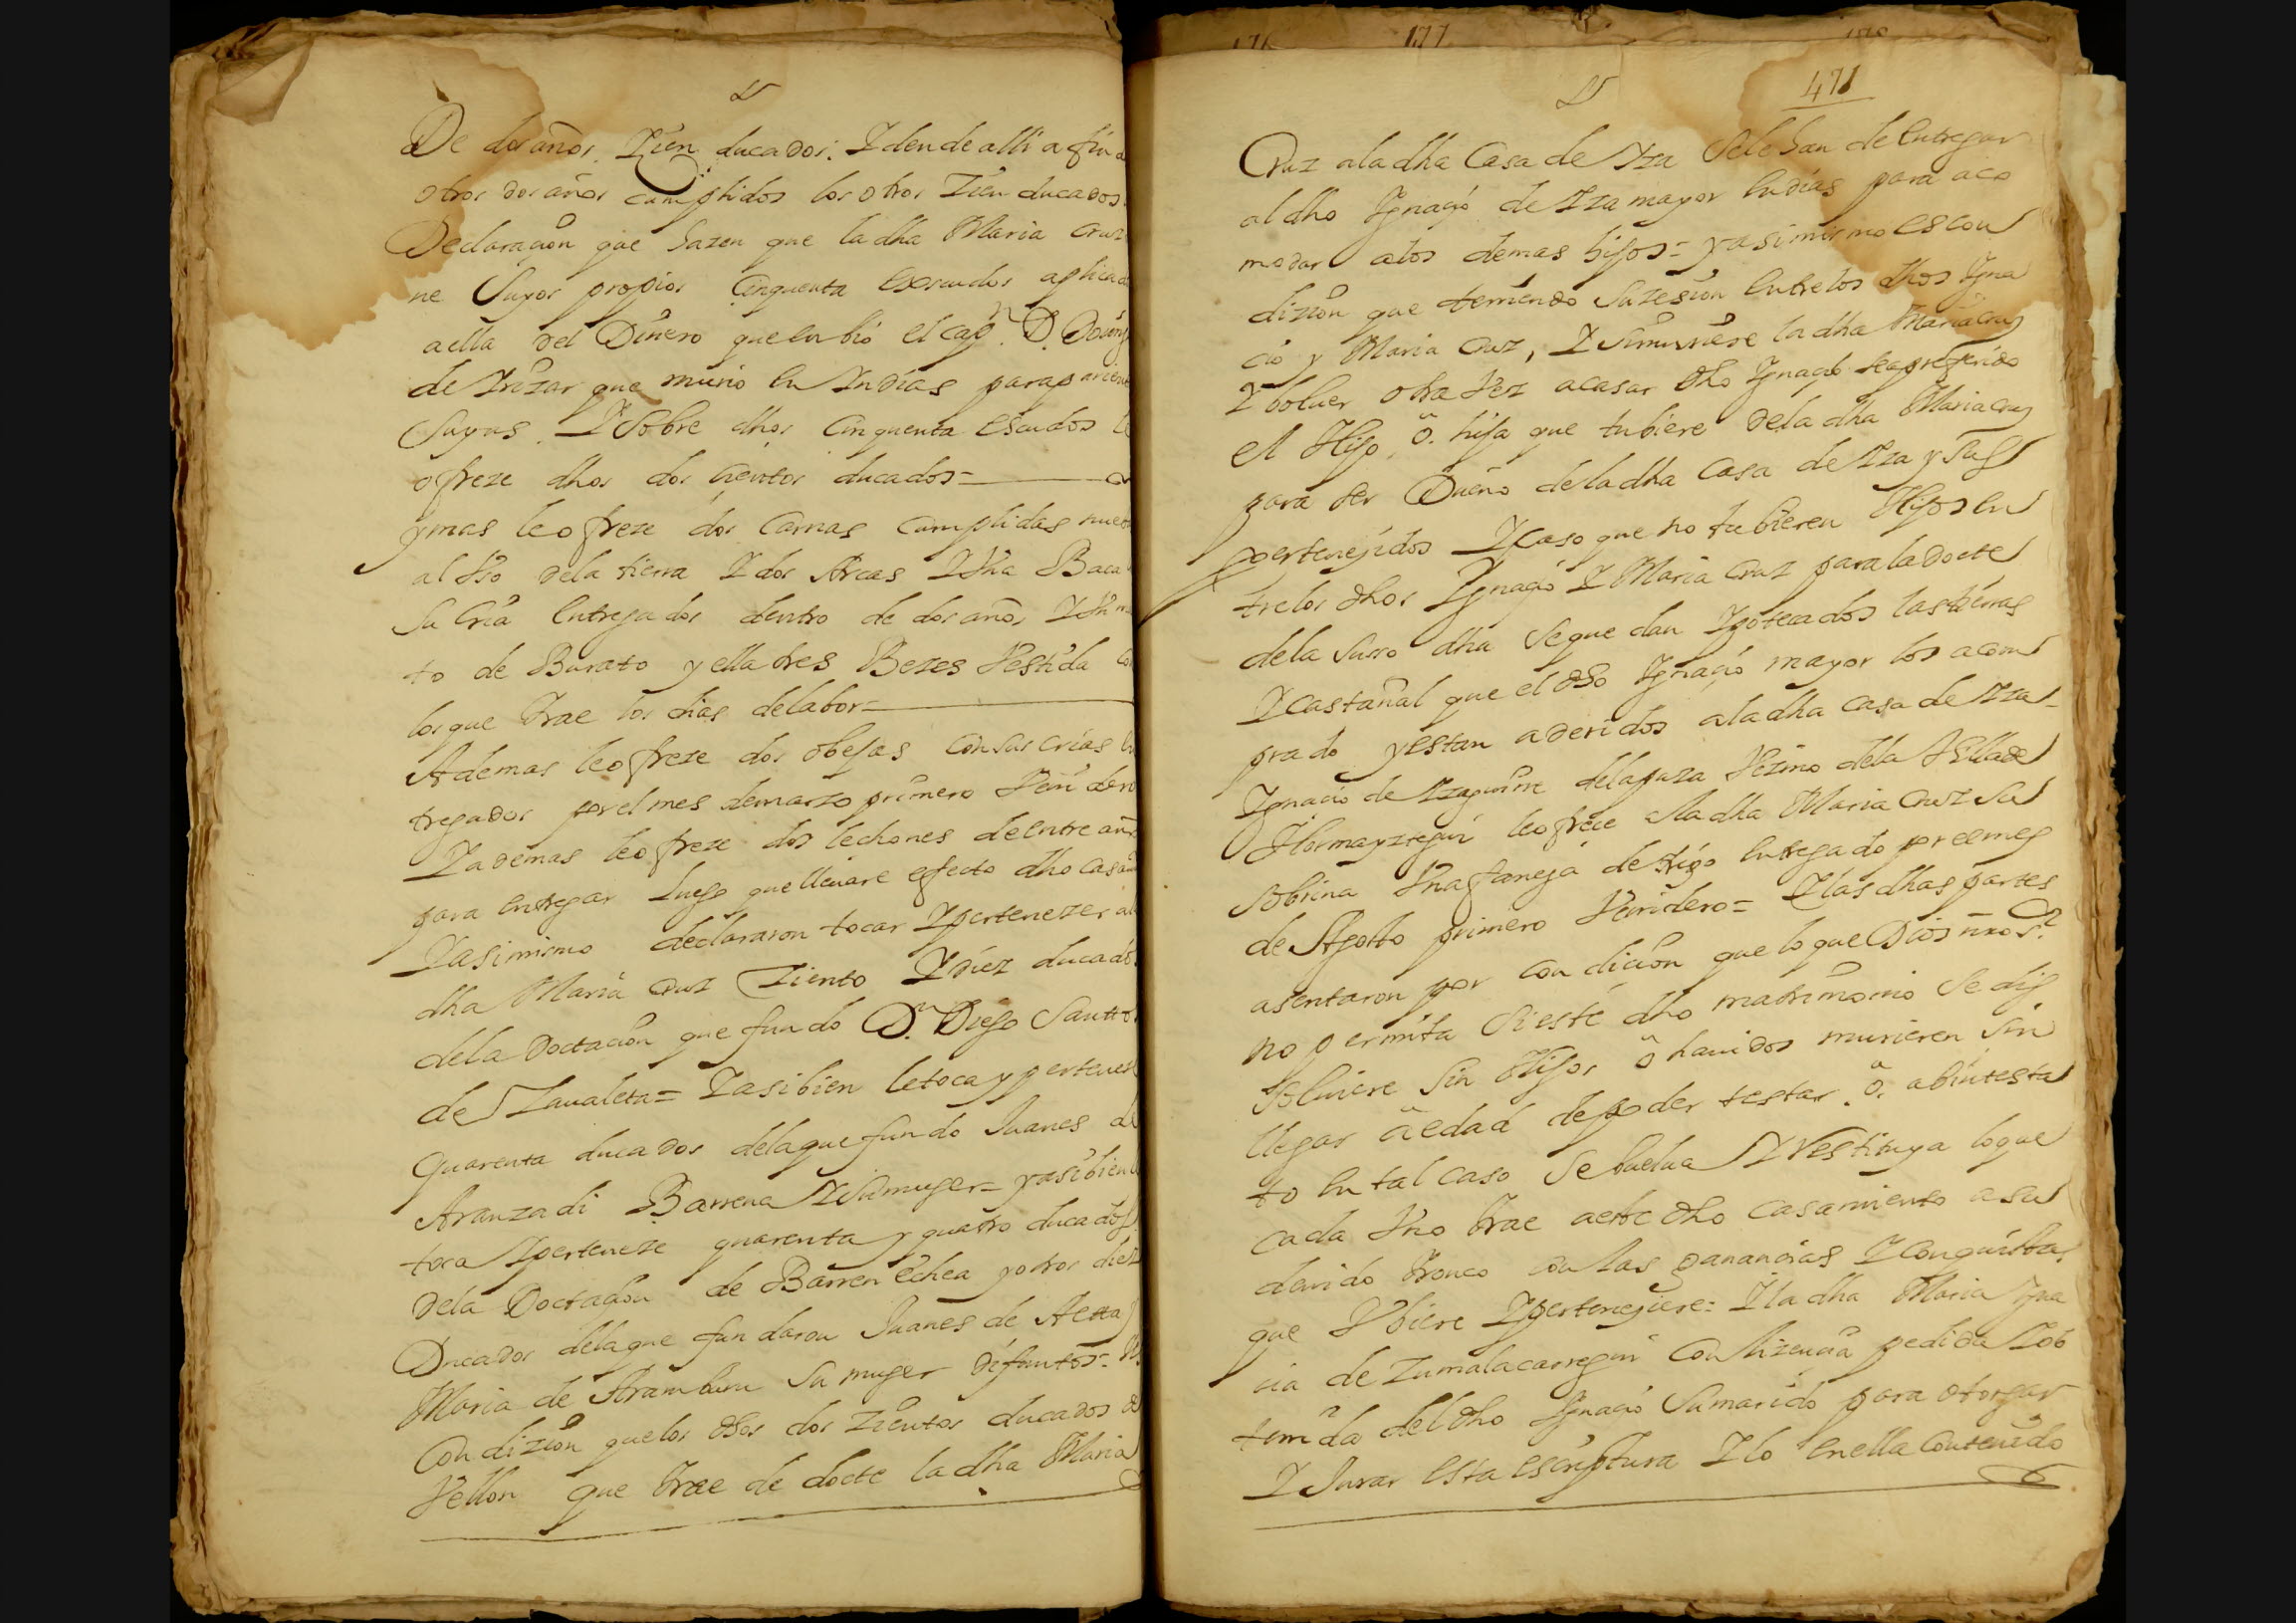 De dos años. Zien ducados. Y dende alli a fin d
otros dos años cumplidos los otros Zien ducados.
Declaraçion que hazen que la dha Maria cruz
ne Suyos propios Çinquenta escudos aplicad
aella del Dinero que enbió el capn. D. Doming
de Irizar que murio en Indias para parient
Suyas. Y Sobre dhos Çinquenta escudos le
ofreze dhos dos Çientos ducados=
y mas le ofreze dos Camas Cumplidas nueb
al Vso dela tierra Y dos Arcas Y Vna Baca
Su Cria entregados dentro de dos años, Y Vn m
to de Burato y ella tres Bezes Vestida con
los que trae los dias delabor=
Ademas le ofreze dos obejas con sus crias en
tregados por el mes demarzo primero Veni dero
Y ademas le ofreze dos lechones de entre año
para entregar Luego que llevare efecto dho casam
Y asimismo declararon tocar Y pertenezer ala
dha Maria cruz Ziento Y diez ducados
dela Doctacion que fundo Dn. Diego Santtos
de Zavaleta= Y asi bien le toca y pertenez
quarenta ducados dela que fundo Juanes de
Aranzadi Barrena Y Su muger= y asi bien le
toca Y perteneze quarenta y quatro ducados
Dela Doctaçion de Barrenechea y otros diez
Ducados dela que fundaron Juanes de Aetta y
Maria de Aramburu Su muger difuntos=
Con dizion que los dhos dos Zientos ducados de
Vellon que trae de docte la dha Maria
471
Cruz ala dha Casa de Yza Sele han de entregar
al dho Ygnaçio de Yza mayor en dias para aco
modar alos demas hijos= y asimismo es con
dizion que teniendo Suzesion entre los dhos Ygna
cio y Maria cruz, Y Si muriese la dha Maria cruz
Y bolver otra Vez acasar dho Ygnaçio sea preferido
el Hijo, ô hija que tubiere dela dha Maria cruz
para ser Dueño dela dha Casa de Yza y Sus
pertenezidos Y caso que no tubieren Hijos en
trelos dhos Ygnaçio Y Maria cruz para la docte
dela Suso dha Se que dan Ypotecados las tierras
Y castañal que el dho Ygnaçio mayor los acom
prado y estan aderidos ala dha casa de Yza=
Ygnacio de Yzaguirre delapaza Vezino dela Villa de
Hormayztegui le ofrece ala dha Maria cruz Su
Sobrina Vna faneja de trigo entregado por el mes
de Agosto primero Venidero= Y las dhas partes
asentaron por condicion que lo que Dios nro Sr.
no permita Si este dho matrimonio Se dis
Solviere Sin Hijos, ô havidos murieren Sin
llegar âedad depoder testar, ô. abintesta
to en tal caso Se buelva Y restituya lo que
cada Vno trae aeste dho casamiento a su
devido tronco con las ganancias Y conquistas
que Vbiere Y perteneçiere= Y la dha Maria Ygna
cia de Zumalacarregui Con lizencia pedida Y ob
tenida del dho Ygnaçio Su marido para otorgar
Y Jurar esta escriptura Y lo en ella Contenido